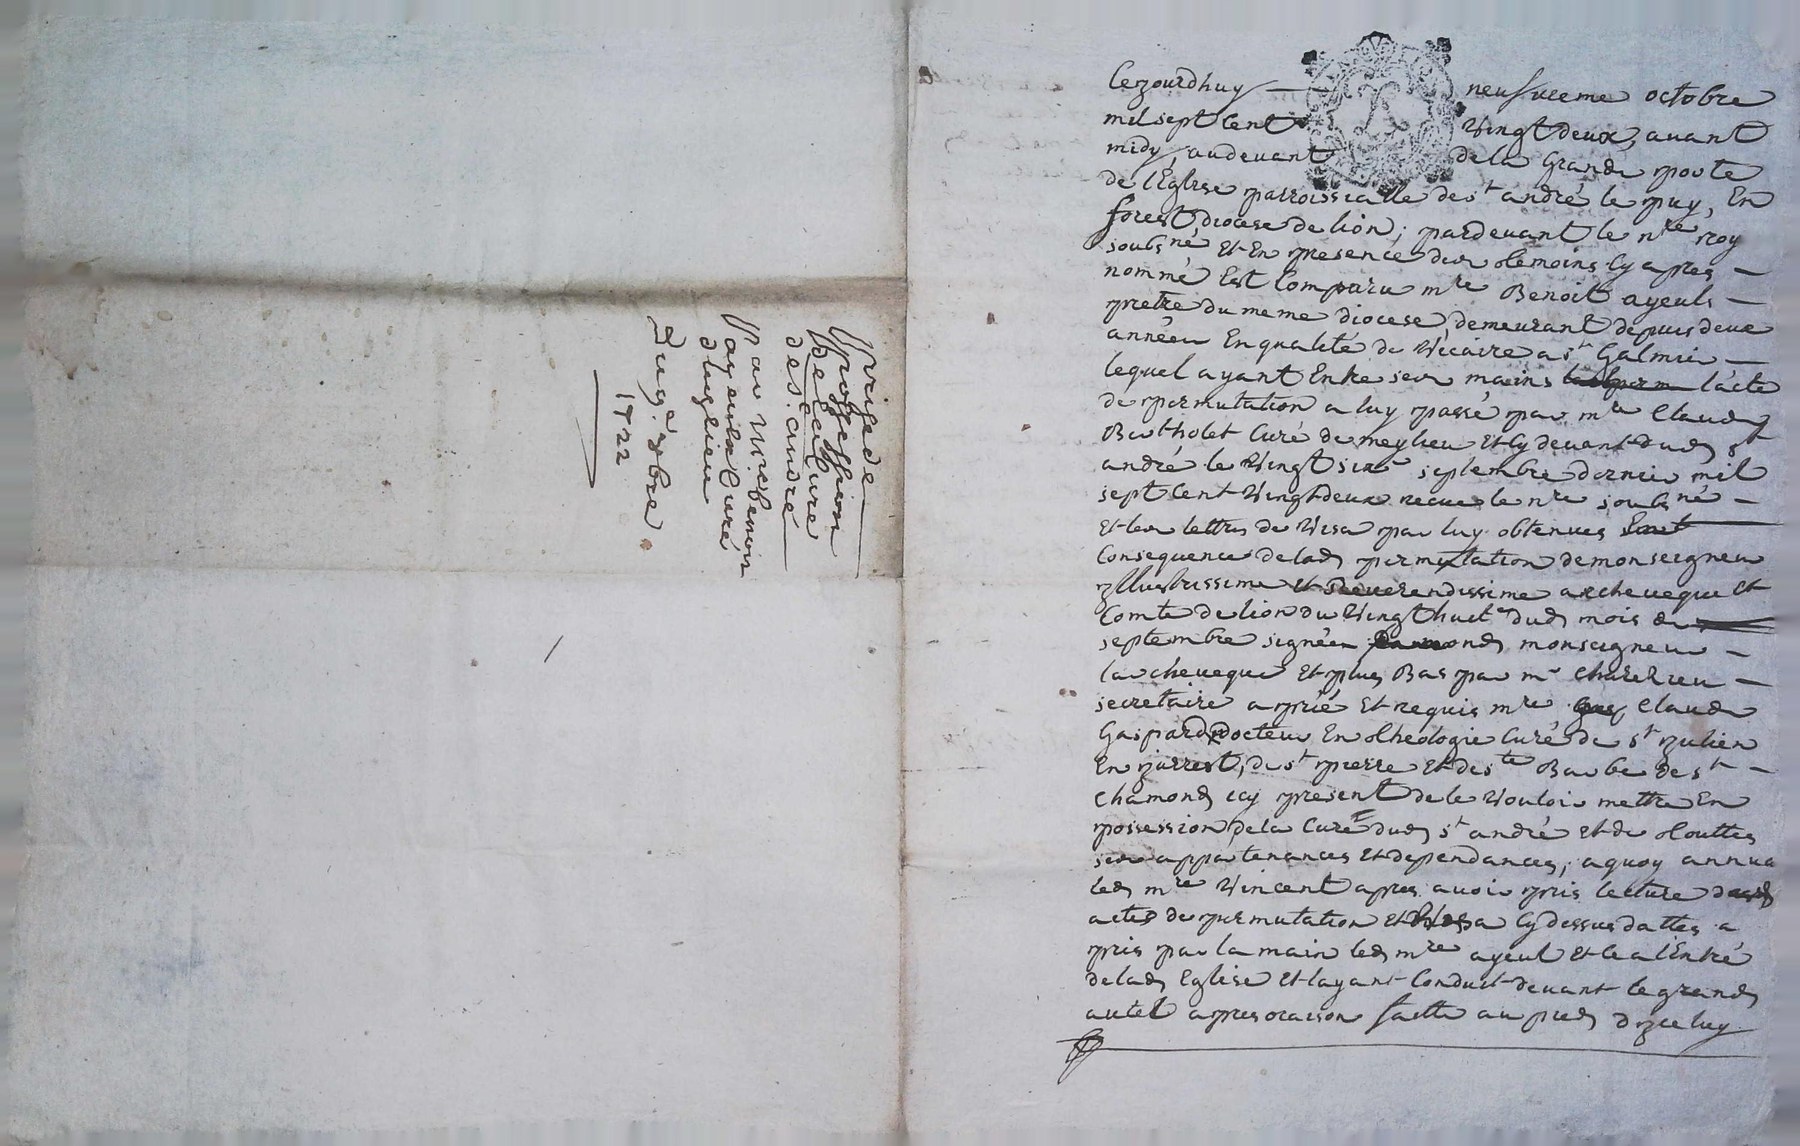 Prise de
possession
de la cure
de s. andré
par mre benoit
ayeulx curé
du 9e 8bre
1722
Cejourdhuy neufvieme octobre
mil sept cent vingt deux, avant
midy, audevant de la grande porte
de l'Eglise parroissialle de st andré le puy, En
forest, diocese de lion; pardevant le nre roy
soubsné Et En presence des temoins cy apres
nommé Est comparu mre Benoit ayeuls
prettre du meme diocese, demeurant depuis deux
années En qualité de vicaire a st Galmier
lequel ayant Entre ses mains l'acte
de permutation a luy passé par mre Claude
Bertholet curé de meylieu Et cy devant dud st
andré le vingt six septembre dernier mil
sept cent vingt deux receu le nre soubsné
Et les lettres de visa par luy obtenues
Consequence de lad permutation de monseigneur
yllustrissime et Reverendissime archeveque et
Comte de lion du vingt huite dud mois de
septembre signées monseigneur
larcheveque Et plus Bas par mr
secretaire a prié Et requis mre Claude
Gaspard docteur En theologie Curé de st julien
En jarrest, de st pierre Et de ste Barbe de st
chamond icy present de le vouloir mettre En
possession de la Cure dud st andré Et de touttes
ses appartenances Et dependances, a quoy
led mre vincent apres avoir pris lecture
actes de permutation Et visa cy dessus dattes a
pris par la main led mre ayeul Et le a l'Entré
de lad Eglise Et layant conduit devant le grand
autel apres oraison faitte au pied dyceluy